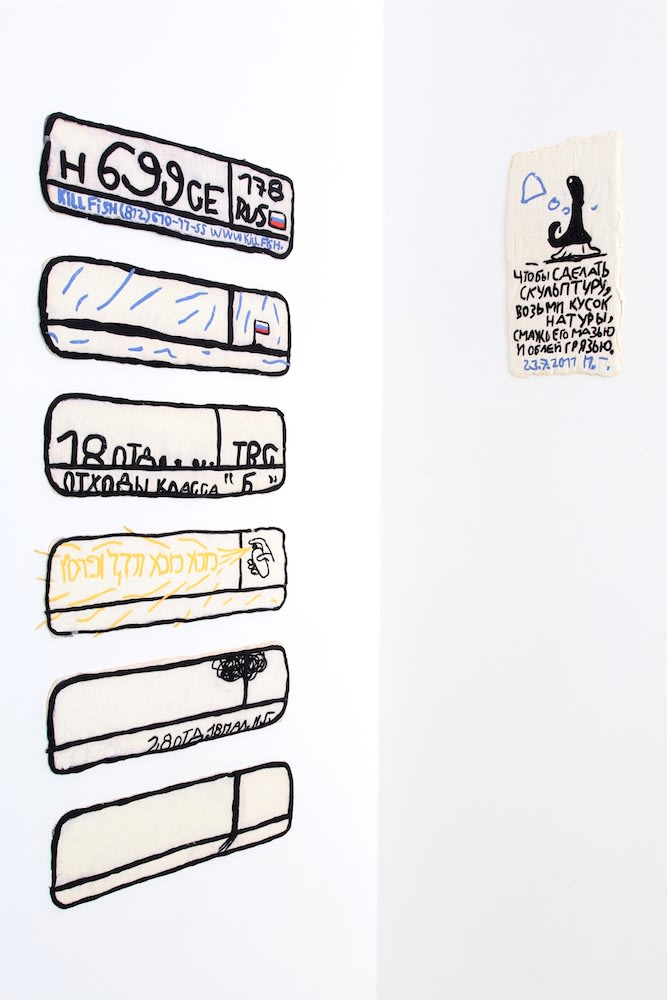 H 699 CE 178
RUS
KILLFISH (812) 670-77-55 WWW.KILLFISH.
18 ОТД..... ТВС
ОТХОДЫ КЛАССА "Б"
מנא מנא תקל ופרסין
28 ОТД. 18 ПАЛ.
ЧТОБЫ СДЕЛАТЬ
СКУЛЬПТУРУ,
ВОЗЬМИ КУСОК
НАТУРЫ,
СМАЖЬ ЕГО МАЗЬЮ
И ОБЛЕЙ ГРЯЗЬЮ.
23.7.2011